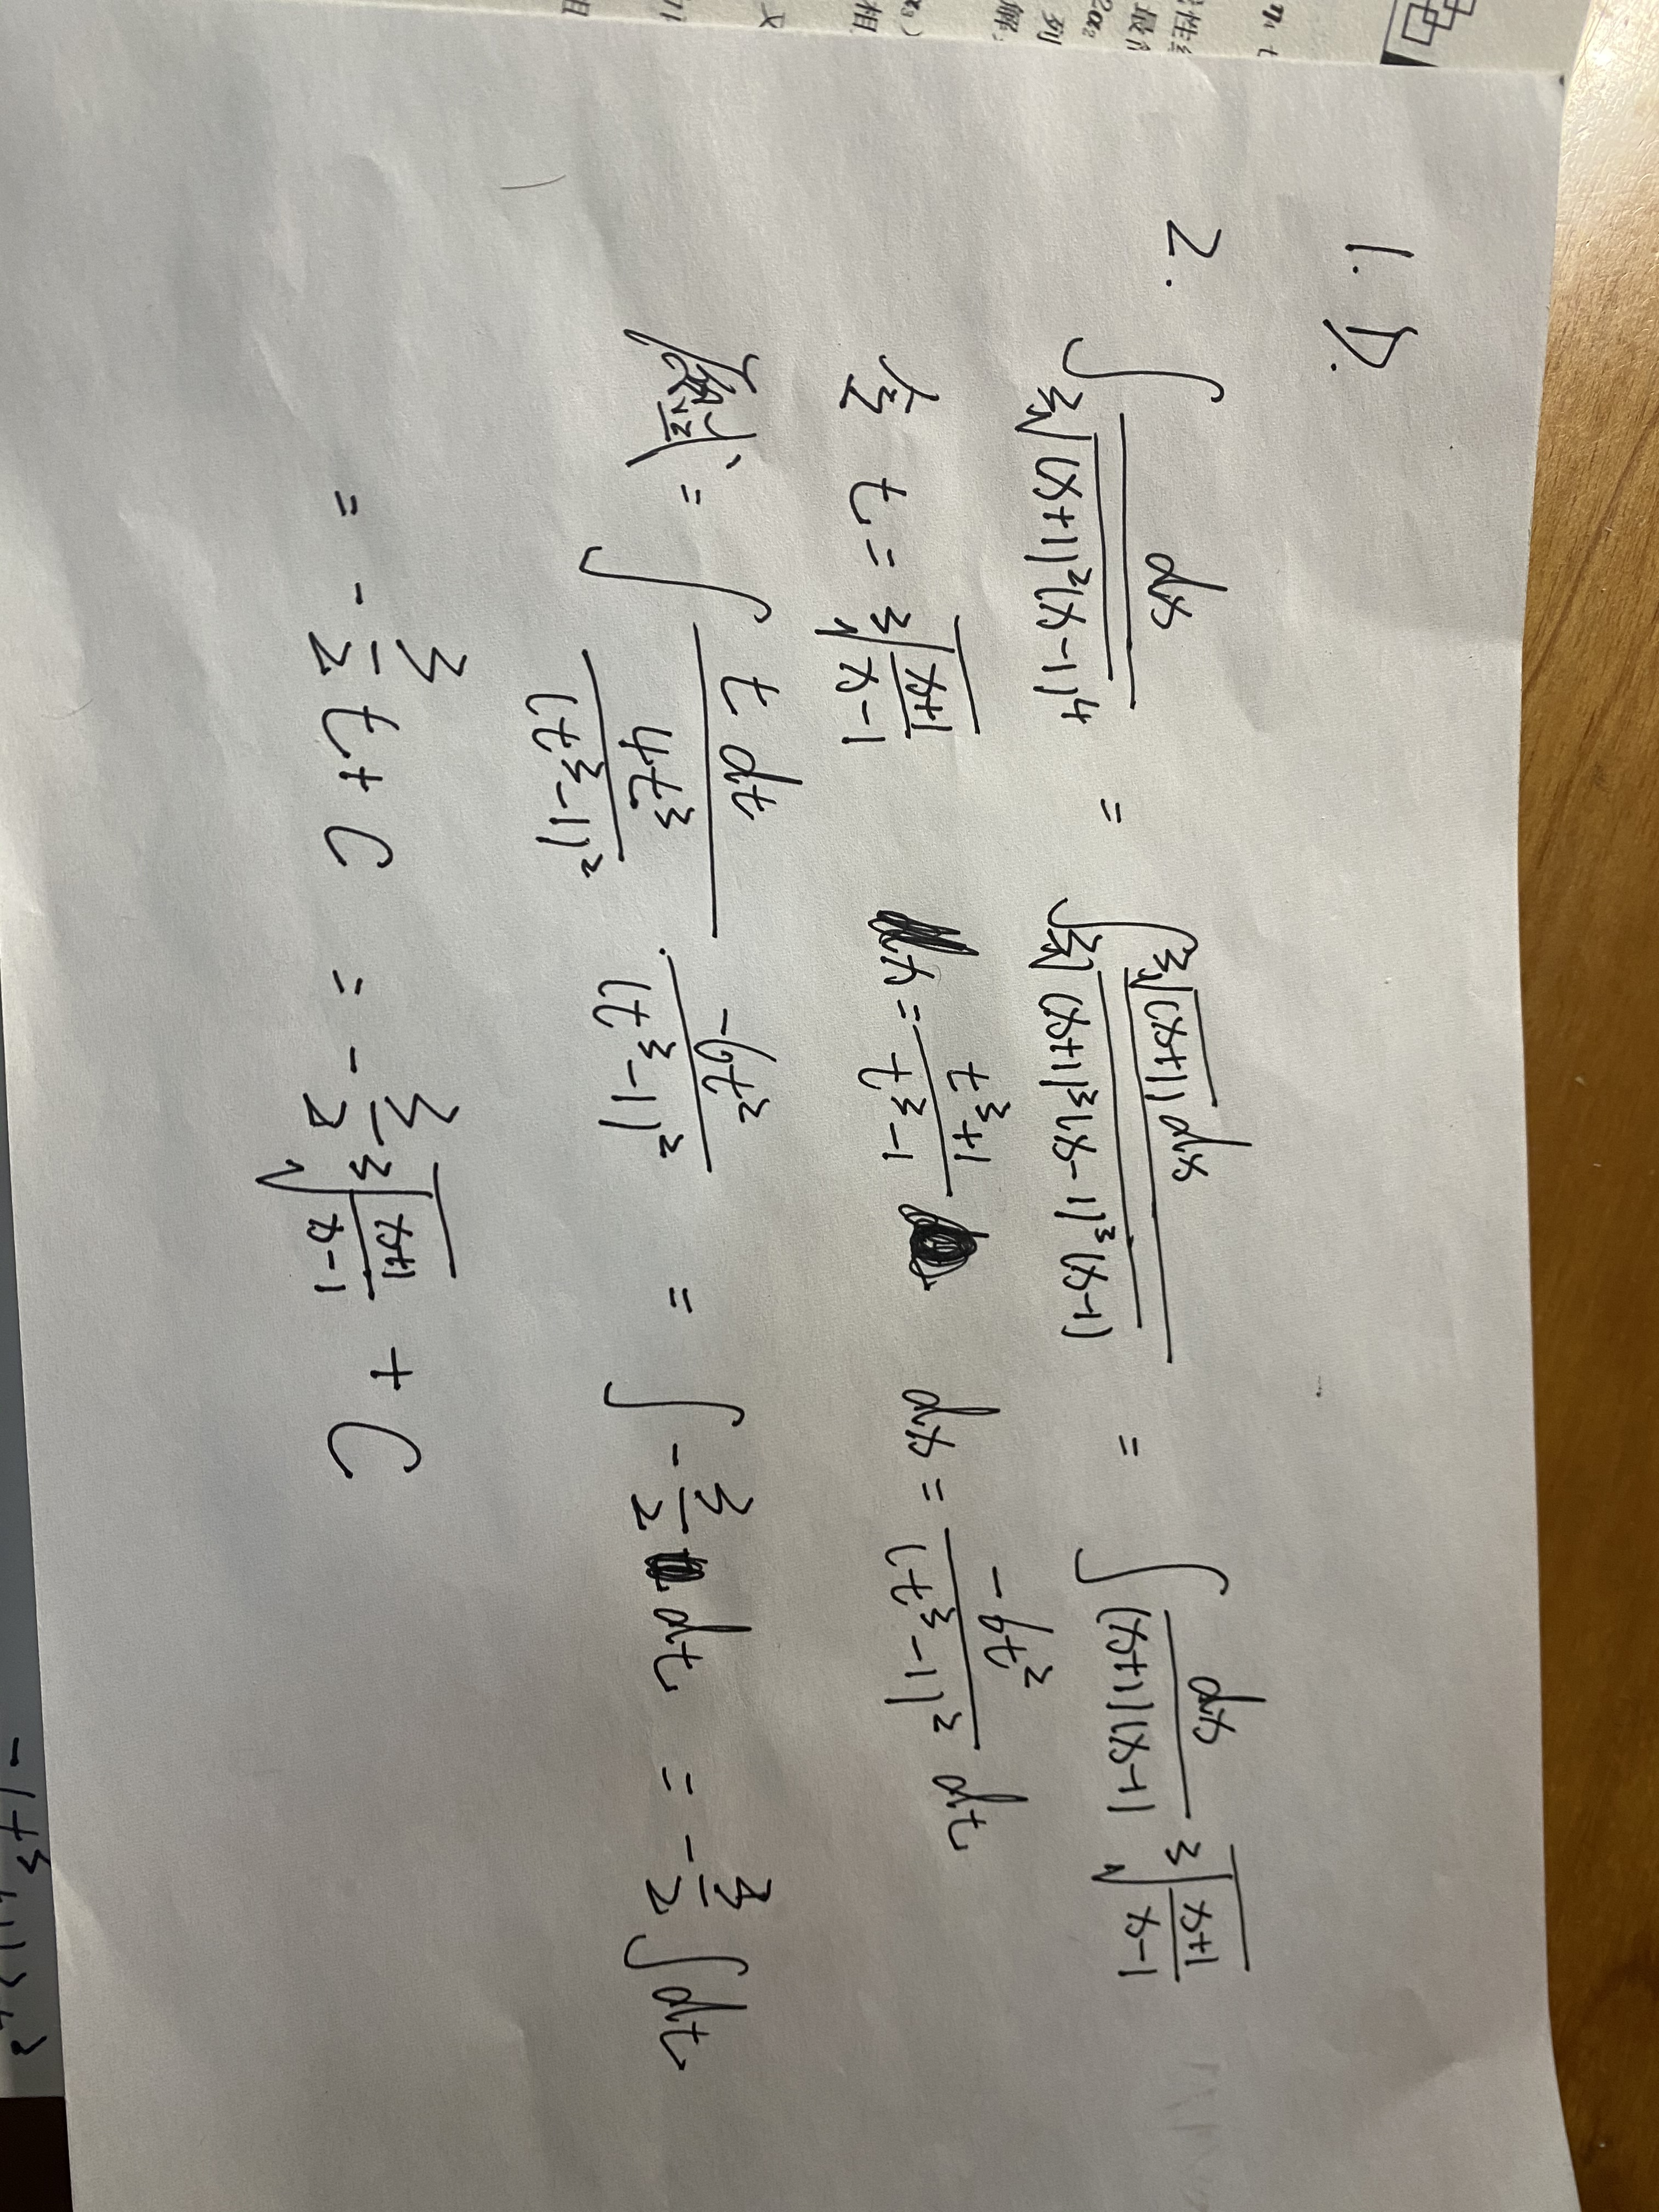 1. D.
2. ∫ dx / ∛((x+1)²(x-1)⁴) = ∫ ∛(x+1) dx / ∛((x+1)³(x-1)³(x-1)) = ∫ dx / ((x+1)(x-1)) ∛((x+1)/(x-1))
令 t = ∛((x+1)/(x-1)) x = (t³+1)/(t³-1) dx = -6t²/(t³-1)² dt
= ∫ t dt / (4t³/(t³-1)²) · -6t²/(t³-1)² = ∫ -3/2 dt = -3/2 ∫ dt
= -3/2 t + C = -3/2 ∛((x+1)/(x-1)) + C